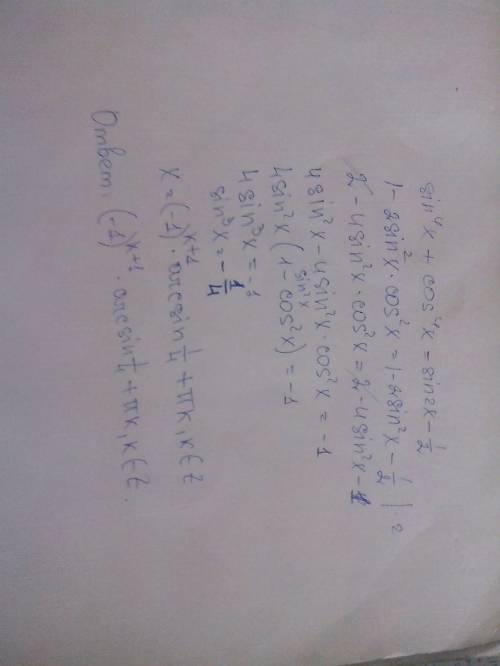 sin⁴x + cos⁴x = sin2x - 1/2
1 - 2sin²x · cos²x = 1 - 2sin²x - 1/2 | · 2
2 - 4sin²x · cos²x = 2 - 4sin²x - 1
4sin²x - 4sin²x · cos²x = -1
sin²x
4sin²x (1 - cos²x) = -1
4sin³x = -1
sin³x = -1/4
x = (-1)^(k+1) · arcsin 1/4 + πk, k ∈ Z
Ответ: (-1)^(k+1) · arcsin 1/4 + πk, k ∈ Z.